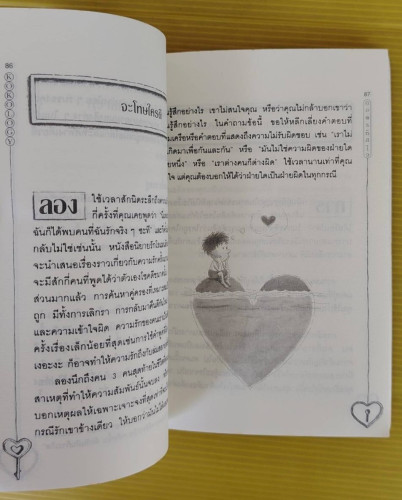 86
KOKOLOGY
จะโทษใครดี
ลอง
ใช้เวลาสักนิดระลึกถึง
กี่ครั้งที่คุณเคยพูดว่า
ฉันก็ได้พบคนที่ฉันรักจริง ๆ ซะที" และ
กลับไม่ใช่เช่นนั้น หนังสือนิยายรัก
จะนำเสนอเรื่องราวเกี่ยวกับความรัก
จะมีสักกี่คนที่พูดได้ว่าตัวเองโชคดี
ส่วนมากแล้ว การค้นหาคู่ครอง
ถูก มีทั้งการเลิกรา การกลับมาคืนดี
และความเข้าใจผิด ความรักของคน
ครั้งเรื่องเล็กน้อยที่สุดเช่นการใช้คำพูด
เงอะงะ ก็อาจทำให้ความรักถึงกับ
ลองนึกถึงคน 3 คนสุดท้ายใน
สาเหตุที่ทำให้ความสัมพันธ์นั้นจบลง
บอกเหตุผลให้เฉพาะเจาะจงที่สุด
กรณีรักเขาข้างเดียว ให้บอกว่า
87
รู้สึกอย่างไร เขาไม่สนใจคุณ หรือว่าคุณไม่กล้าบอกเขาว่า
รู้สึกอย่างไร ในคำถามข้อนี้ ขอให้หลีกเลี่ยงคำตอบที่
คลุมเครือหรือคำตอบที่แสดงถึงความไม่รับผิดชอบ เช่น "เราไม่
เกิดมาเพื่อกันและกัน" หรือ "มันไม่ใช่ความผิดของฝ่ายใด
ยหนึ่ง" หรือ "เราต่างคนก็ต่างผิด" ใช้เวลานานเท่าที่คุณ
แต่คุณต้องบอกให้ได้ว่าฝ่ายใดเป็นฝ่ายผิดในทุกกรณี